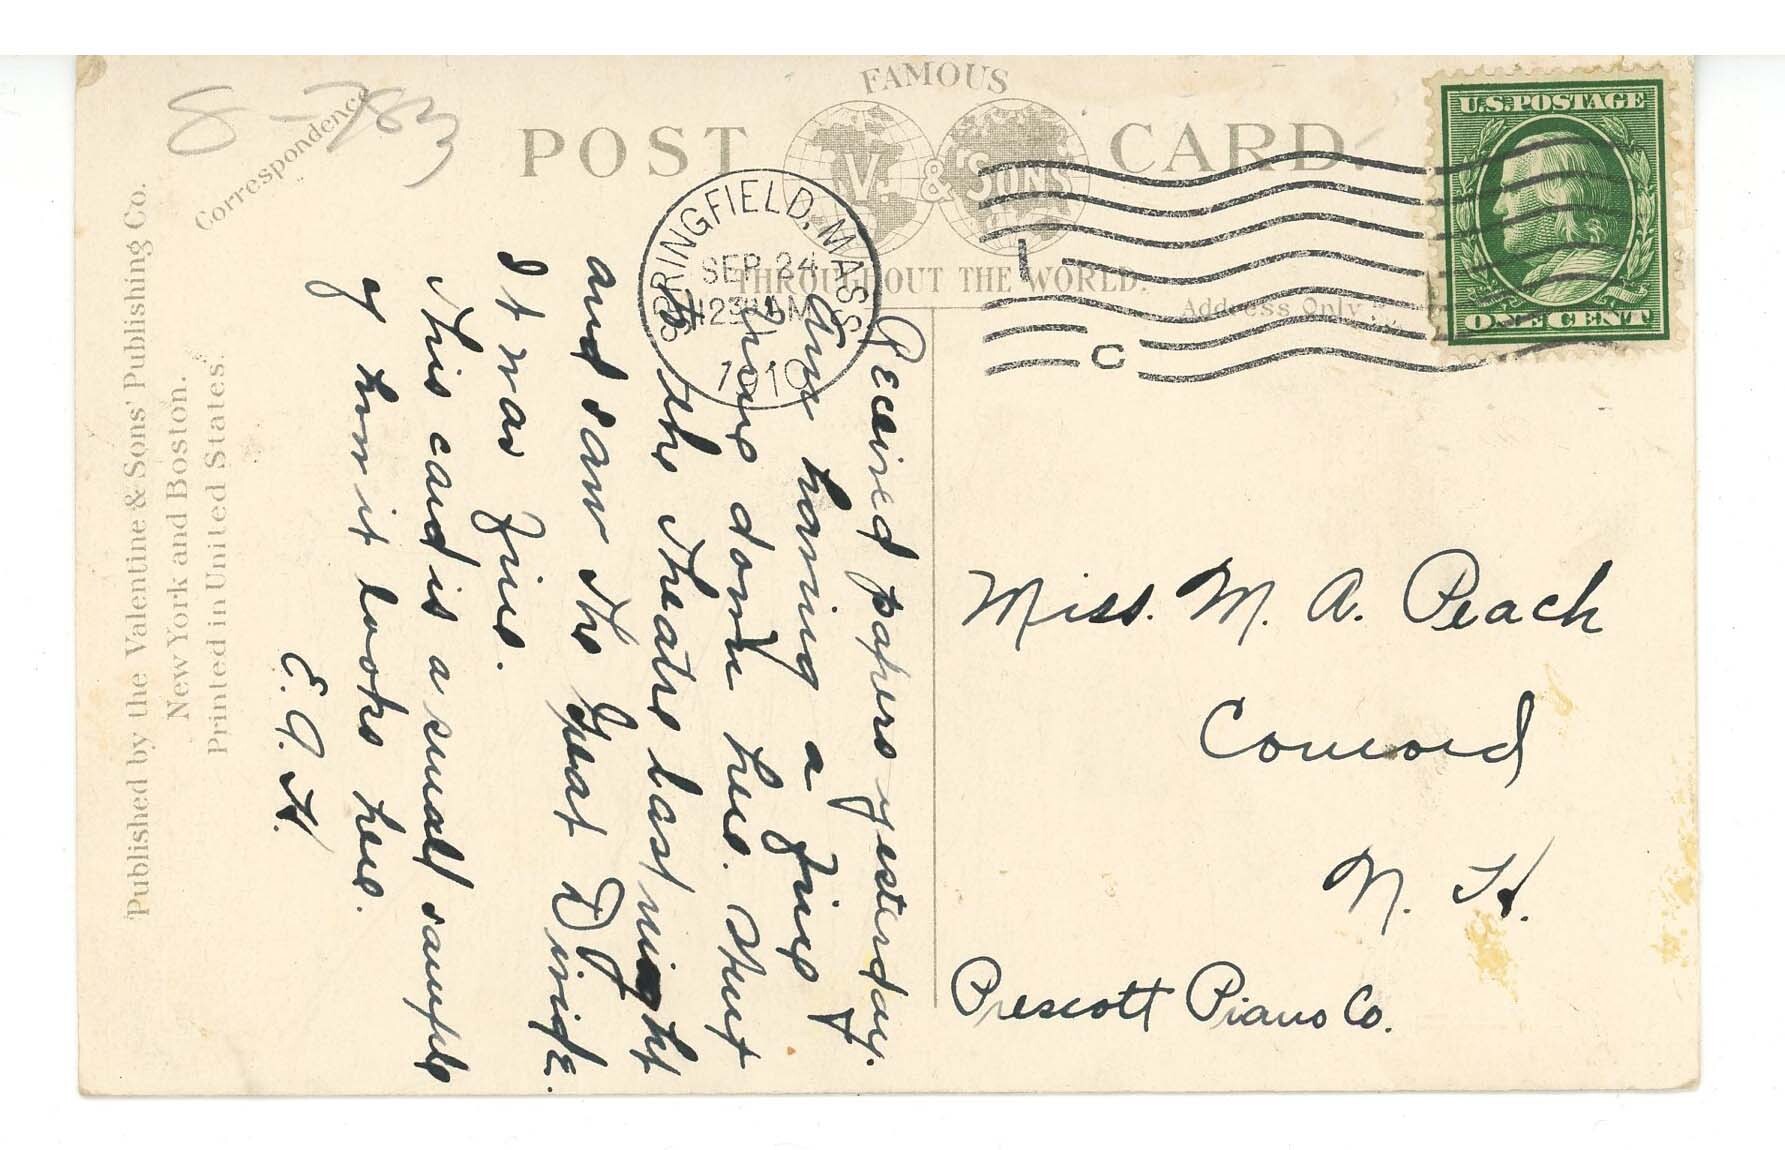 8-783
Correspondence
FAMOUS
POST CARD.
V. & SONS
THROUGHOUT THE WORLD.
Address Only
U.S. POSTAGE
ONE CENT
SPRINGFIELD, MASS.
SEP. 24
12 30 AM
1910
1
C
Published by the Valentine & Sons' Publishing Co.
New York and Boston.
Printed in United States.
Received papers yesterday.
Am having a fine
time down here. Went
to the Theatre last night
and saw The Great Divide.
It was fine.
This card is a small sample
of how it looks here.
E. A. H.
Miss. M. A. Peach
Concord
N. H.
Prescott Piano Co.